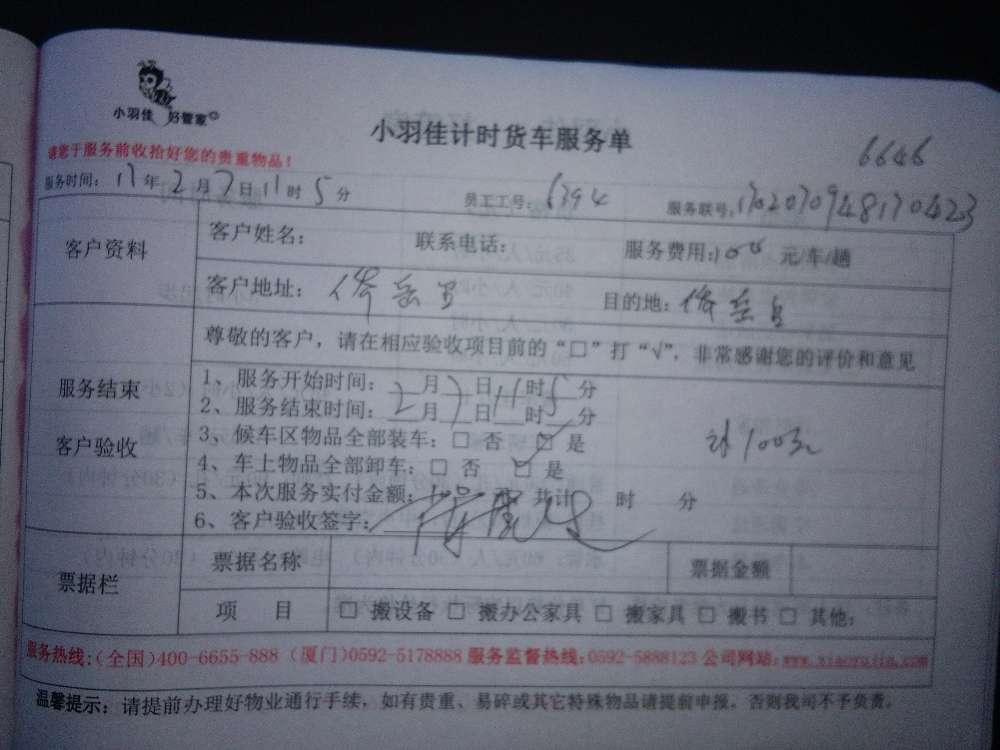 小羽佳 好管家
小羽佳计时货车服务单
6646
请您于服务前收拾好您的贵重物品！
服务时间：17年2月7日11时5分 员工工号：6394 服务联号：1702070948170423
客户资料
客户姓名： 联系电话： 服务费用：100 元/车/趟
客户地址： 目的地：
尊敬的客户，请在相应验收项目前的“□”打“√”，非常感谢您的评价和意见
服务结束
客户验收
1、服务开始时间：2月7日11时5分
2、服务结束时间：2月7日11时5分
3、候车区物品全部装车：□ 否 □ 是
4、车上物品全部卸车：□ 否 □ 是
计100元
5、本次服务实付金额： 共计 时 分
6、客户验收签字：
票据栏
票据名称 票据金额
项 目 □ 搬设备 □ 搬办公家具 □ 搬家具 □ 搬书 □ 其他：
服务热线：(全国)400-6655-888 (厦门)0592-5178888 服务监督热线：0592-5888123 公司网站：www.xiaoyujia.com
温馨提示：请提前办理好物业通行手续，如有贵重、易碎或其它特殊物品请提前申报。否则我司不予负责。